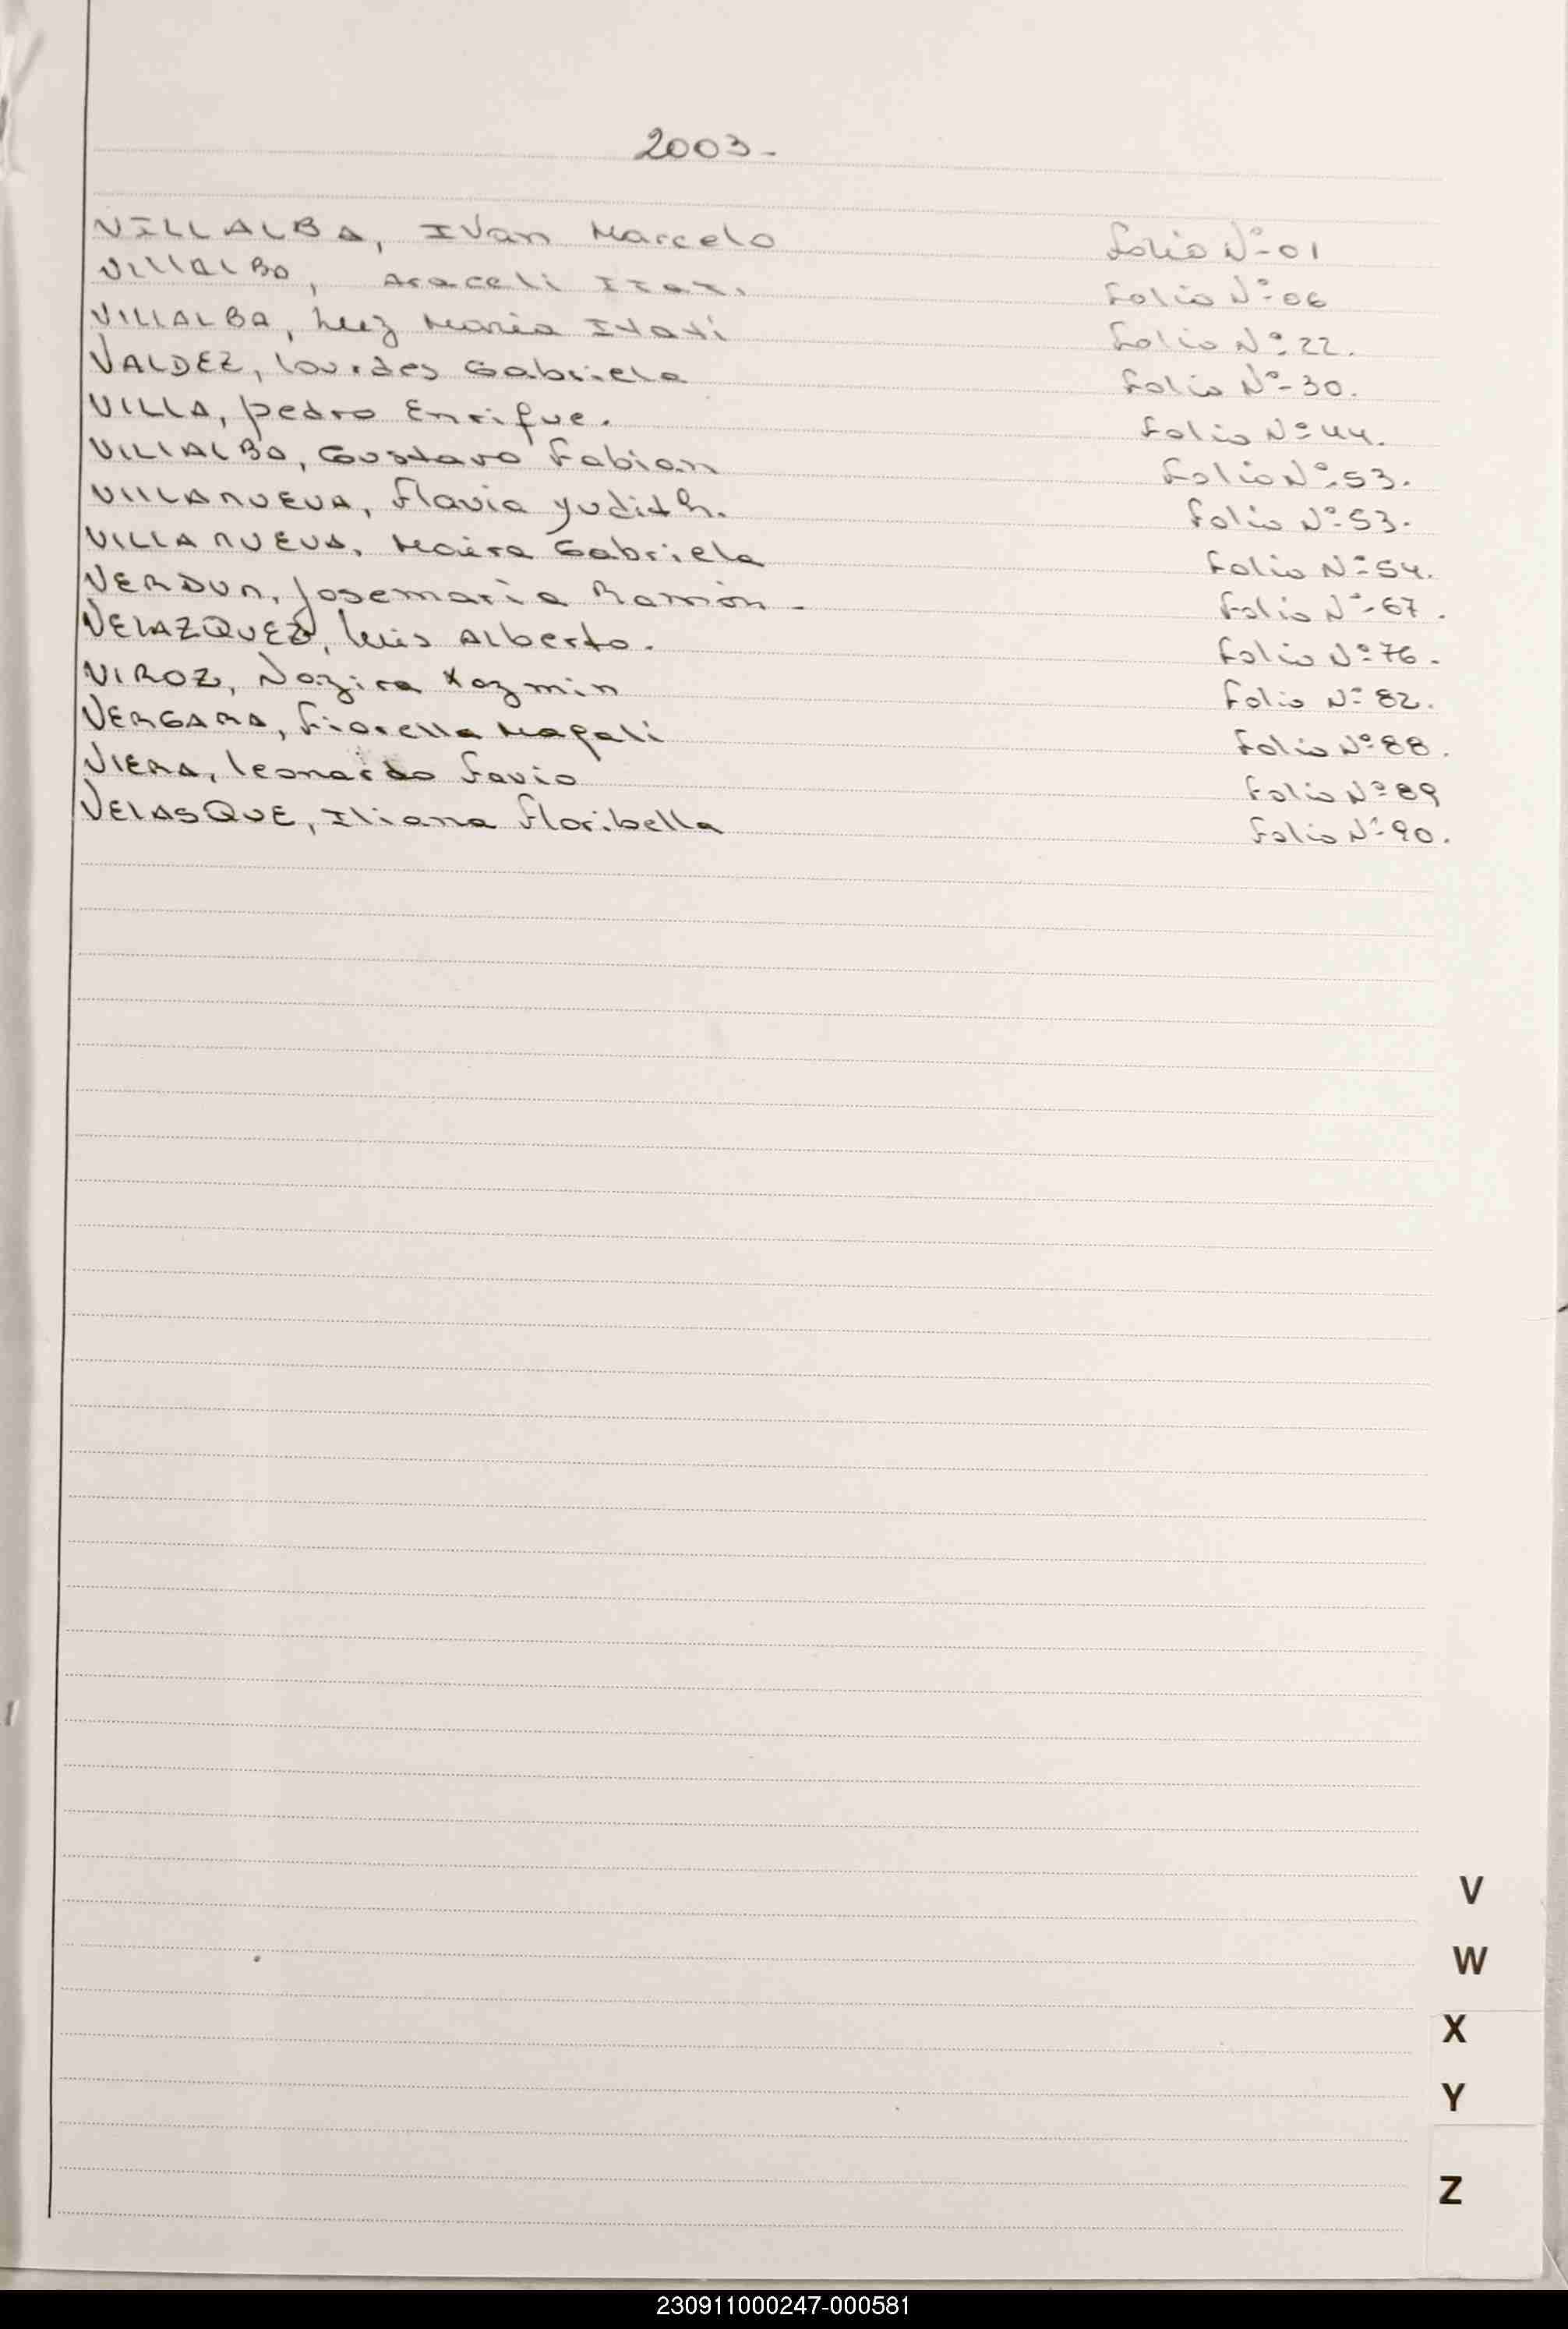 2003-
VILLALBA, Ivan Marcelo Folio Nº-01
VILLALBA, Araceli Folio Nº-06
VILLALBA, Luz Maria Itati Folio Nº-22.
VALDEZ, Lourdes Gabriela Folio Nº-30.
VILLA, pedro Enrique. Folio Nº 44.
VILLALBA, Gustavo Fabian Folio Nº-53.
VILLANUEVA, Flavia Yudith. Folio Nº-53.
VILLANUEVA, Maira Gabriela Folio Nº-54.
VERDUN, Josemaria Ramón - Folio Nº-67.
VELAZQUEZ, Luis Alberto. Folio Nº 76.
VIROZ, Nazira Yazmin Folio Nº 82.
VERGARA, Fiorella Magali Folio Nº 88.
VIERA, Leonardo Favio Folio Nº 89
VELASQUE, Iliana Floribella Folio Nº-90.
V
W
X
Y
Z
230911000247-000581